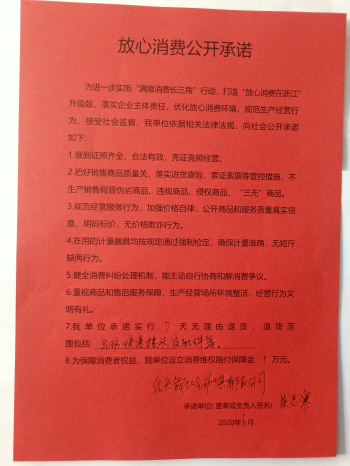 放心消费公开承诺
为进一步实施“满意消费长三角”行动，打造“放心消费在浙江”
升级版，落实企业主体责任，优化放心消费环境，规范生产经营行
为，接受社会监督，我单位依据相关法律法规，向社会公开承诺
如下：
1.做到证照齐全、合法有效，亮证亮照经营。
2.把好销售商品质量关，落实进货查验、索证索票等管控措施，不
生产销售假冒伪劣商品、违规商品、侵权商品、“三无”商品。
3.规范经营服务行为，加强价格自律，公开商品和服务质量真实信
息，明码标价，无价格欺诈行为。
4.在用的计量器具均按规定通过强制检定，确保计量准确，无短斤
缺两行为。
5.健全消费纠纷处理机制，能主动自行协商和解消费争议。
6.重视商品和售后服务保障，生产经营场所环境整洁，经营行为文
明有礼。
7.我单位承诺实行7天无理由退货，退货范
围包括：气动快速接头及配件等。
8.为保障消费者权益，我单位设立消费维权赔付保障金1万元。
有限公司
承诺单位（盖章或负责人签名）：
2020年 月